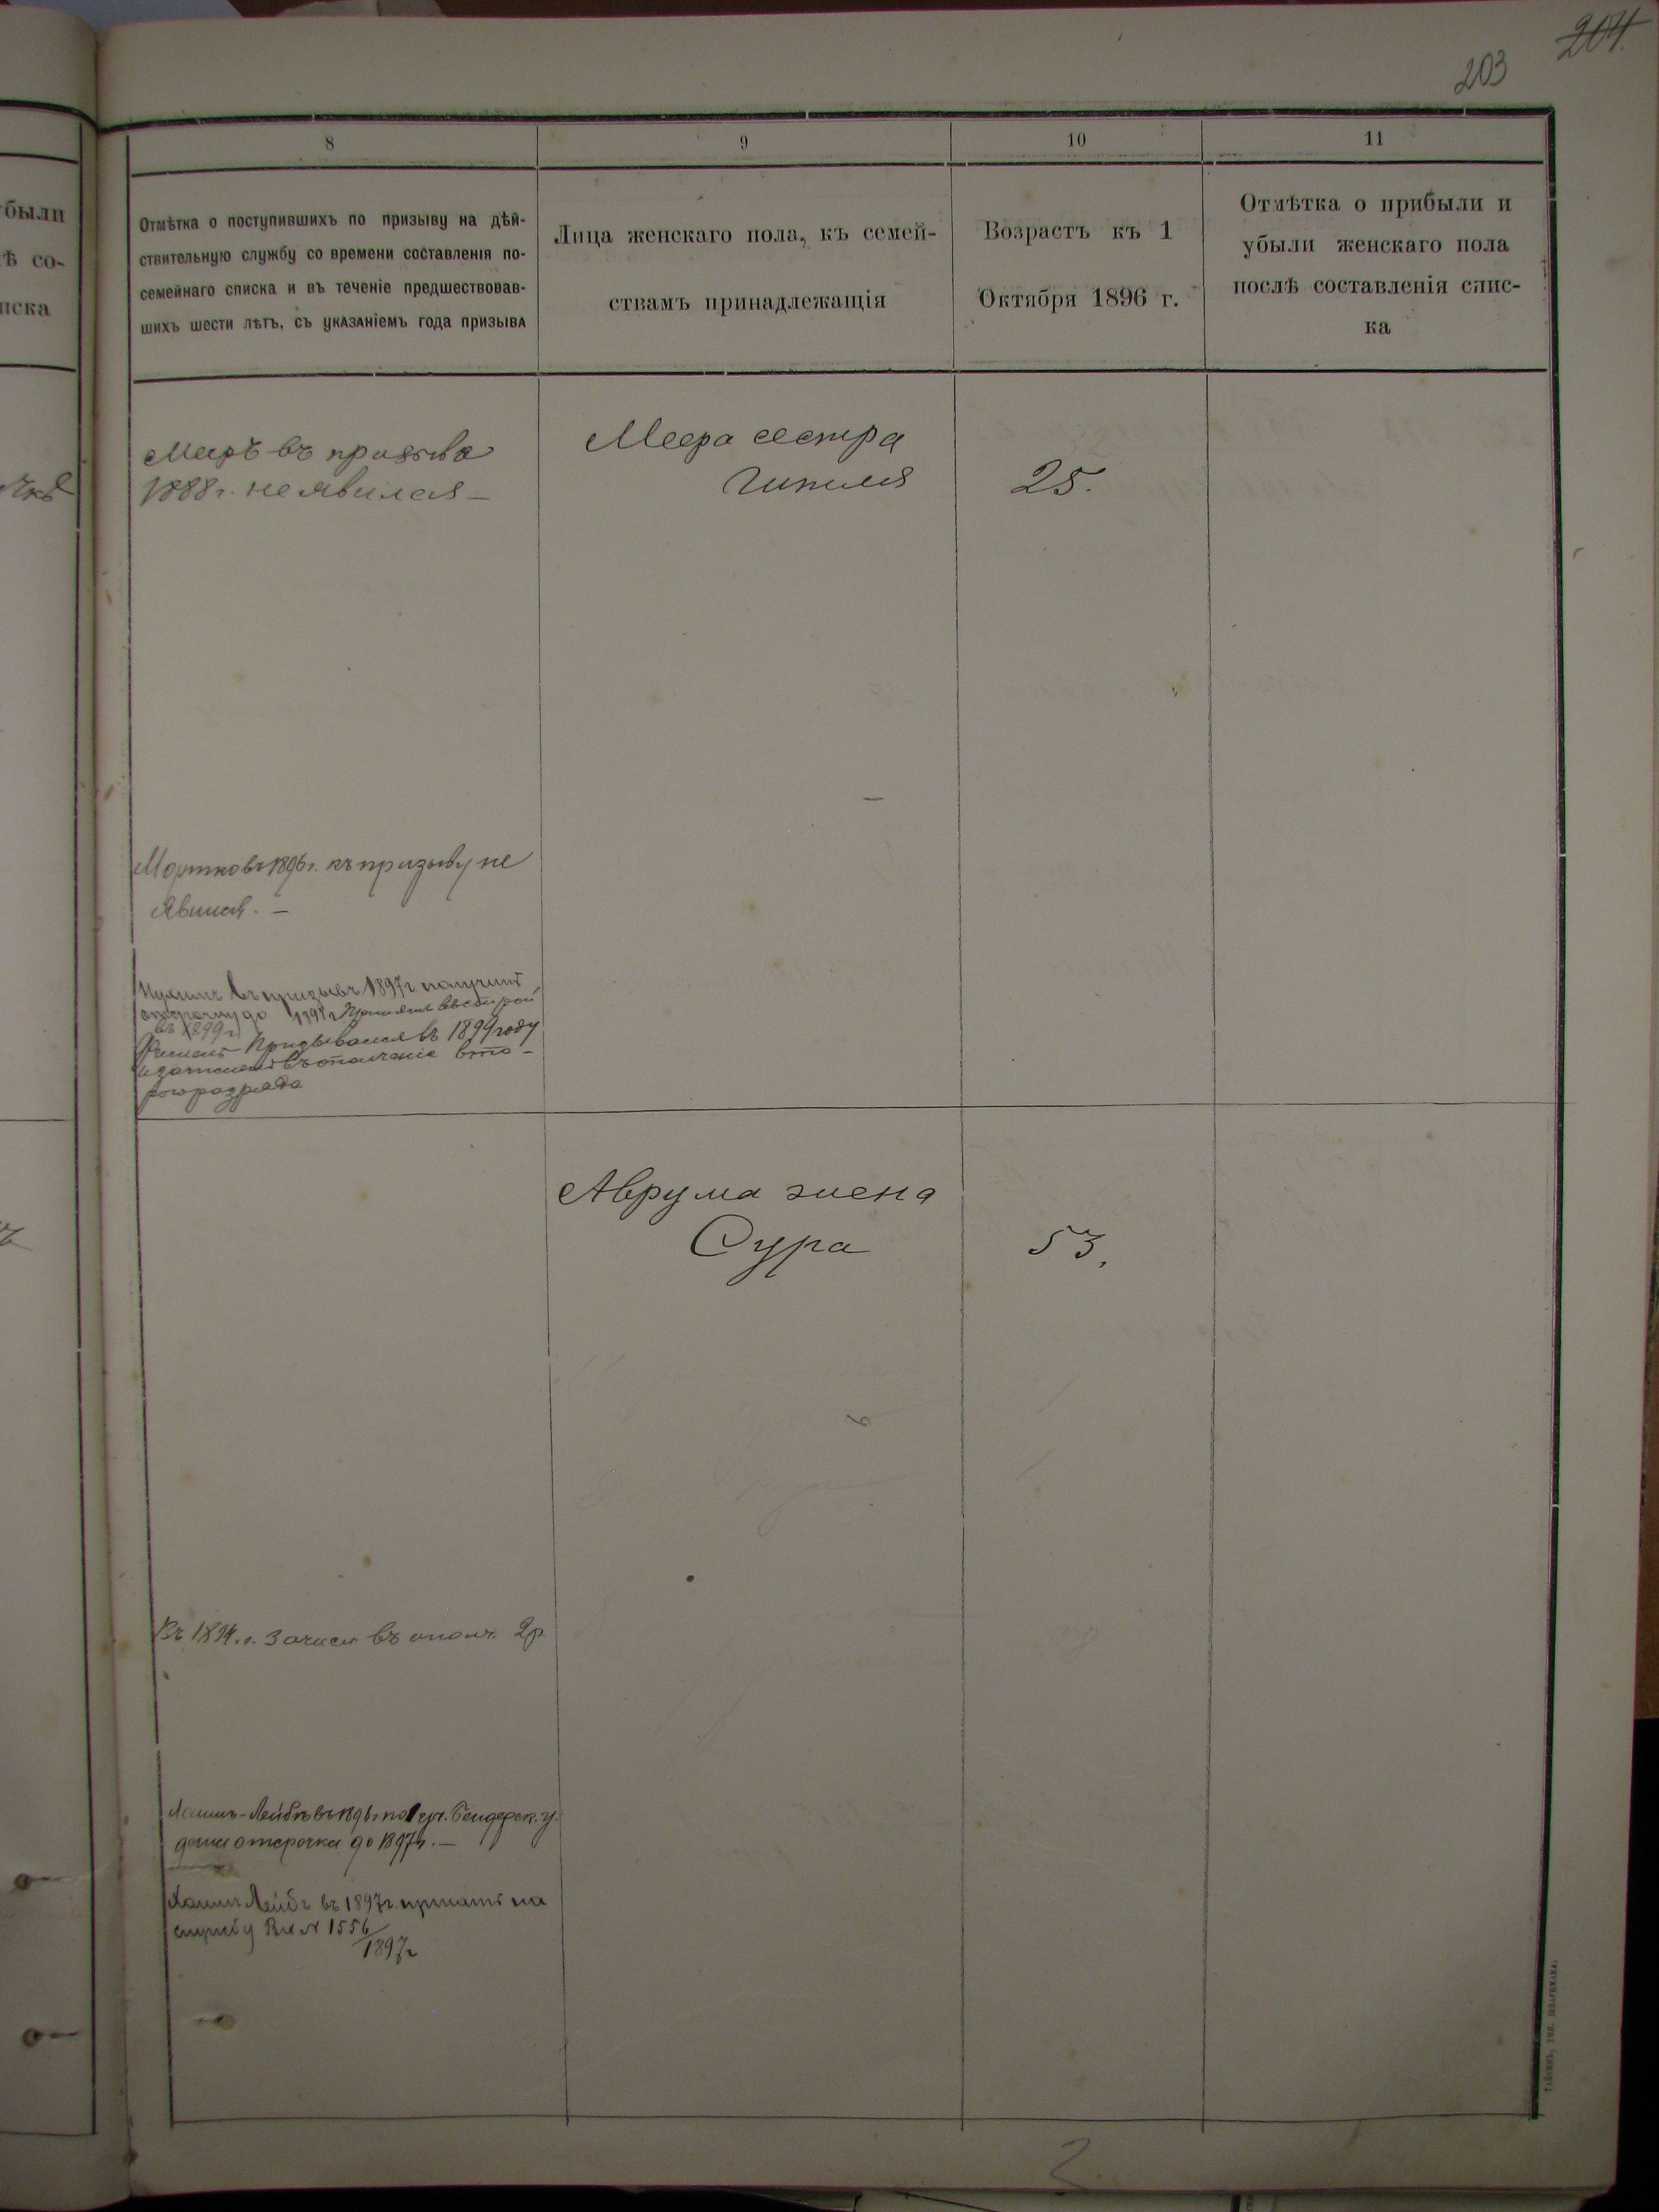 204.
203
были
ѣ со-
иска
8
9
10
11
Отмѣтка о поступившихъ по призыву на дѣй-
ствительную службу со времени составленія по-
семейнаго списка и въ теченіе предшествовав-
шихъ шести лѣтъ, съ указаніемъ года призыва
Лица женскаго пола, къ семей-
ствамъ принадлежащія
Возрастъ къ 1
Октября 1896 г.
Отмѣтка о прибыли и
убыли женскаго пола
послѣ составленія спис-
ка
Меръ въ призыва
1888 г. не явился —
Меера сестра
25.
1896 г. къ призыву не
явился. —
въ призывъ 1897 г получилъ
отсрочку до 1898 г
въ 1899 г.
Призывался въ 1899 году
и зачисленъ въ ополченіе вто-
рого разряда
Аврума жена
Сура
53.
Въ 1894. г. Зачисл въ ополч. 2 р.
Лейбѣ въ 1896 г по 1 уч. Бендерск. у.
дана отсрочка до 1897 г. —
Лейбъ въ 1897 г. принятъ на
службу Вх № 1556
1897 г
2.